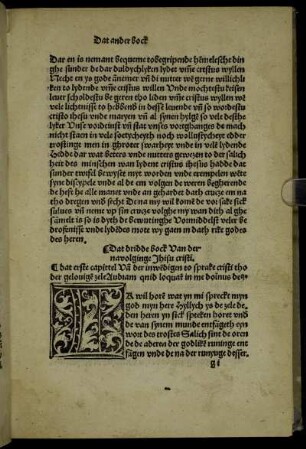 Dat ander boek
Dar en is nemant bequeme to begripende hēmelesche din
ghe sunder de dar duldychlyken lydet vmme cristus wyllen
Neche en ys gode ānemer vñ di nutter wē gerne willichli
ken to lydende vmme cristus willen Vnde mochtestu keisen
leuer scholdestu be geren tho liden vmme cristus wyllen wē
vele lichtnisse to hebbend in desser leuende vñ so wordestu
cristo ihesu vnde maryen vñ al synen hylgē so vele desthe
lyker Vnse vordeinst vñ stat vnses vortghanges de mach
nicht staen in vele soetycheyth noch wollustycheyt edder
trostinge men in ghroter swarheyt vnde in vele lydende
Hedde dar wat beters vnde nutters gewezen to der salich
heit des minschen wan lydent cristus ihesus hadde dat
sunder twifel bewyset myt worden vnde exempelen wēte
syn discypele vnde al de em volgen de weren begherende
de heft he alle manet vnde an gehardet dath cruze em na
tho dregen vnde secht Dena my wil komē de vorsake sick
sulues vñ neme vp sin cruze volghe my wan dith al ghe
samelt is so is dyth de besluetinghe Vormiddelst veler be
drofenisse vnde lydēdes mote wy gaen in dath rike godes
des heren
Dat dridde boek Van der
navolginge Jhesu cristi.
dat erste capittel Vā der inwēdigen to sprake cristi tho
der gelouigē zele Audiam quid loquat in me dominus de9
K wil horē wat yn mi sprecht myn
god myn here Syllych ys de zele de
den heren yn sick sprcken horet vnd
de van synem munde entfāgeth eyn
wort des trostes Salich sint de oren
de de aderen der godlikē runinge ent
fāgen vnde de na der runynge desser
g i